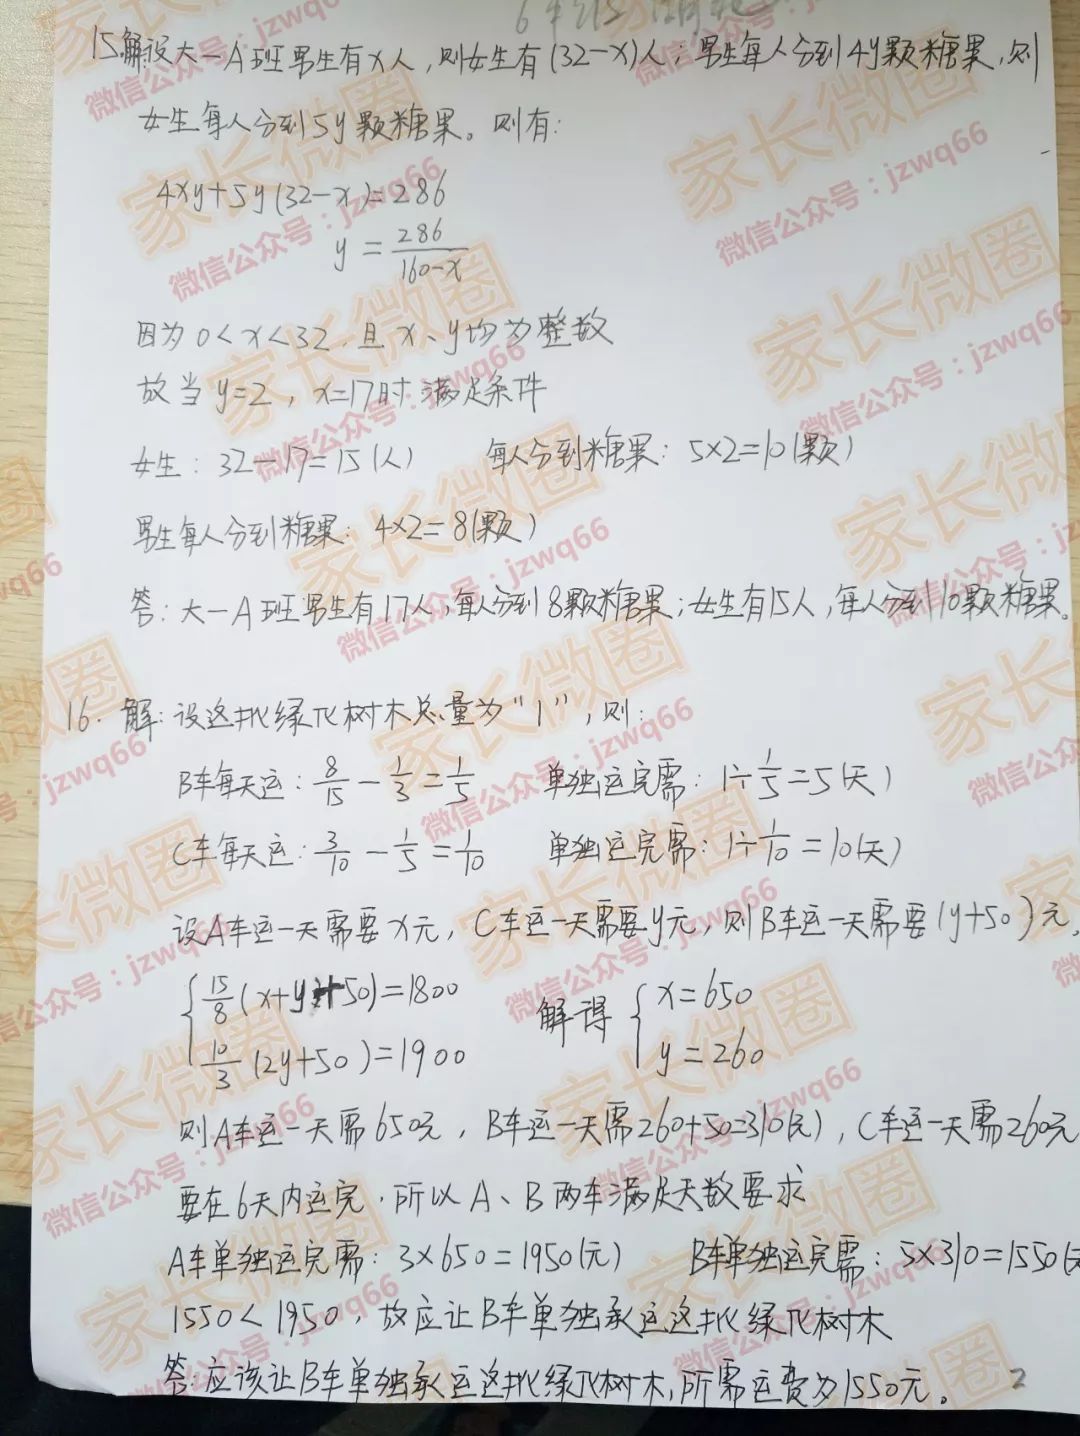 15.解设大一A班男生有x人,则女生有(32-x)人;男生每人分到4y颗糖果,则
女生每人分到5y颗糖果。则有:
4xy+5y(32-x)=286
y=286/(160-x)
因为0<x<32,且x、y均为整数
故当y=2,x=17时满足条件
女生:32-17=15(人) 每人分到糖果:5×2=10(颗)
男生每人分到糖果:4×2=8(颗)
答:大一A班男生有17人,每人分到8颗糖果;女生有15人,每人分到10颗糖果。
16.解:设这批绿化树木总量为"1",则:
B车每天运:8/15-1/3=1/5 单独运完需:1÷1/5=5(天)
C车每天运:3/10-1/5=1/10 单独运完需:1÷1/10=10(天)
设A车运一天需要x元,C车运一天需要y元,则B车运一天需要(y+50)元,
15/8(x+y+50)=1800
10/3(2y+50)=1900
解得
x=650
y=260
则A车运一天需650元,B车运一天需260+50=310(元),C车运一天需260元
要在6天内运完,所以A、B两车满足天数要求
A车单独运完需:3×650=1950(元) B车单独运完需:5×310=1550(元
1550<1950,故应让B车单独承运这批绿化树木
答:应该让B车单独承运这批绿化树木,所需运费为1550元。
2
家长微圈
微信公众号:jzwq66